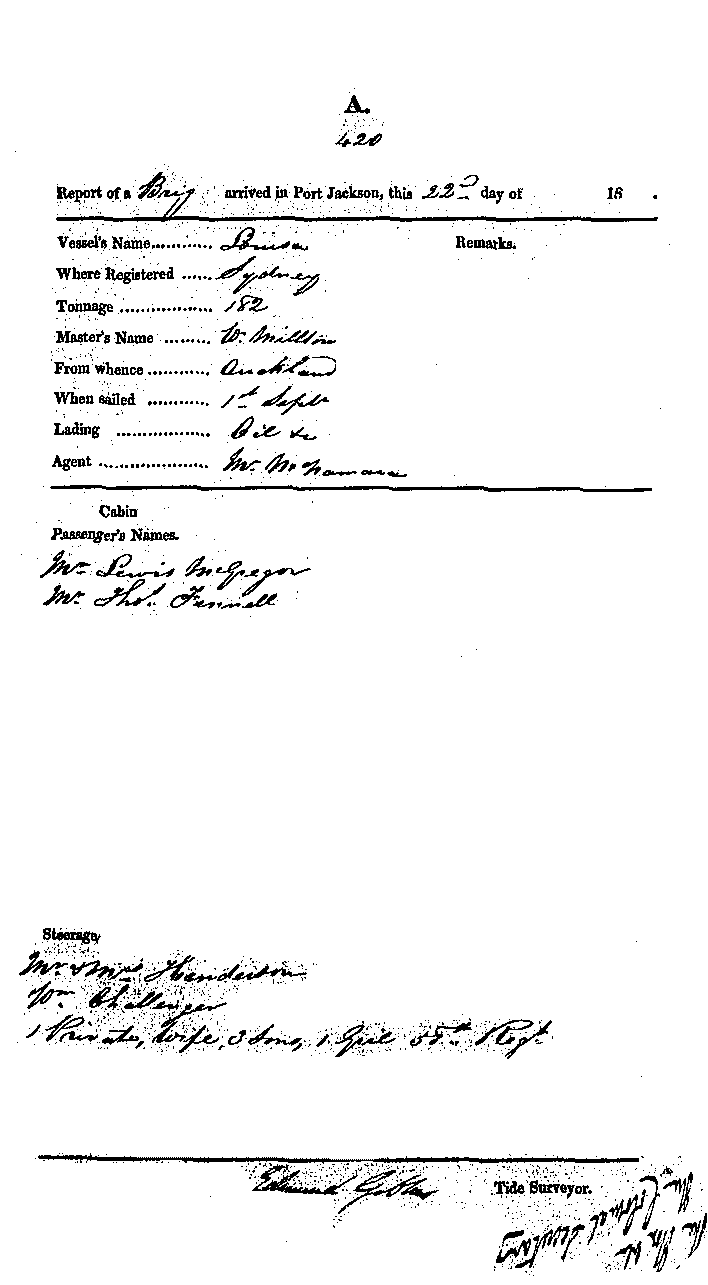 A.
420
Report of a Brig arrived in Port Jackson, this 22d day of 18 .
Vessel's Name........... Louisa
Remarks.
Where Registered ...... Sydney
Tonnage ................. 182
Master's Name ......... W. Millton
From whence ............ Auckland
When sailed ............ 1st Septr
Lading .................. Oil &c
Agent ..................... Mr. McNamara
Cabin
Passenger's Names.
Mr Lewis McGregor
Mr. Thos. Fennell
Steerage
Mr. & Mrs Henderson
Wm Challenger
1 Private, Wife, 3 Sons, 1 Girl 58th Regt
Edmund Tide Surveyor.
The Colonial Secretary